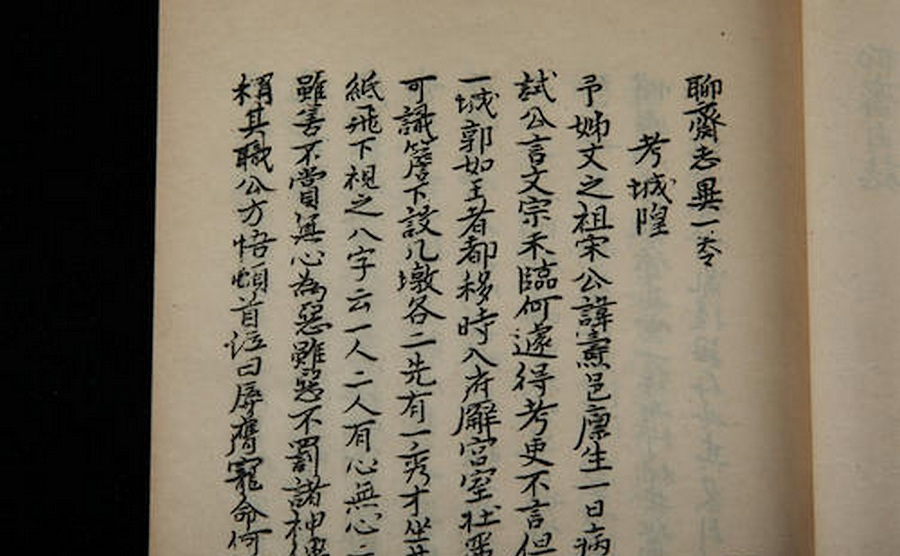 聊齋志異一卷
考城隍
予姊丈之祖宋公諱燾邑廪生一日病
試公言文宗未臨何遽得考吏不言但
一城郭如王者都移時入府廨宮室壮麗
可識簷下設几墩各二先有一秀才坐其
紙飛下視之八字云一人二人有心無心二
雖善不賞無心為惡雖惡不罰諸神傳
稱其職公方悟頓首泣曰辱膺寵命何